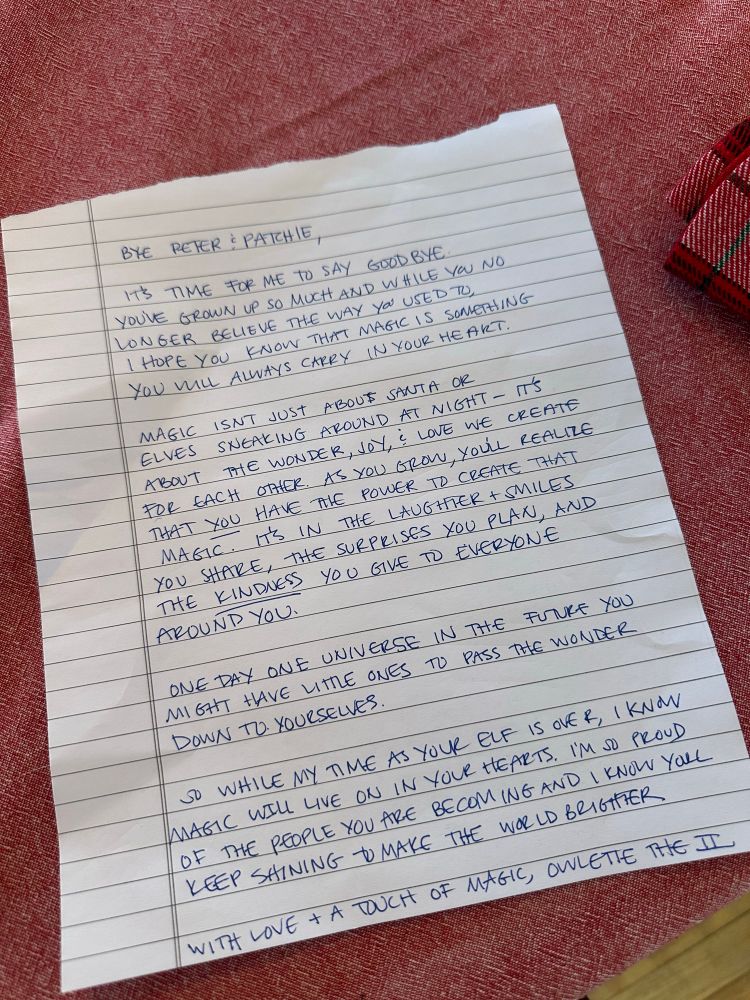 BYE PETER & PATCHIE,
IT'S TIME FOR ME TO SAY GOODBYE.
YOU'VE GROWN UP SO MUCH AND WHILE YOU NO
LONGER BELIEVE THE WAY YOU USED TO,
I HOPE YOU KNOW THAT MAGIC IS SOMETHING
YOU WILL ALWAYS CARRY IN YOUR HEART.
MAGIC ISNT JUST ABOUT SANTA OR
ELVES SNEAKING AROUND AT NIGHT - IT'S
ABOUT THE WONDER, JOY, & LOVE WE CREATE
FOR EACH OTHER. AS YOU GROW, YOU'LL REALIZE
THAT YOU HAVE THE POWER TO CREATE THAT
MAGIC. IT'S IN THE LAUGHTER + SMILES
YOU SHARE, THE SURPRISES YOU PLAN, AND
THE KINDNESS YOU GIVE TO EVERYONE
AROUND YOU.
ONE DAY ONE UNIVERSE IN THE FUTURE YOU
MIGHT HAVE LITTLE ONES TO PASS THE WONDER
DOWN TO YOURSELVES.
SO WHILE MY TIME AS YOUR ELF IS OVER, I KNOW
MAGIC WILL LIVE ON IN YOUR HEARTS. I'M SO PROUD
OF THE PEOPLE YOU ARE BECOMING AND I KNOW YOU'LL
KEEP SHINING TO MAKE THE WORLD BRIGHTER
WITH LOVE + A TOUCH OF MAGIC, OWLETTE THE II